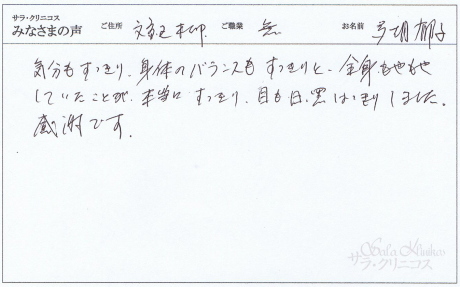 サラ・クリニコス
みなさまの声 ご住所 文京区本郷 ご職業 無 お名前 郁子
気分もすっきり、身体のバランスもすっきりと、全身もやもや
していたことが、本当にすっきり、目も白、黒はっきりしました。
感謝です。
Sala Klinikos
サラ・クリニコス